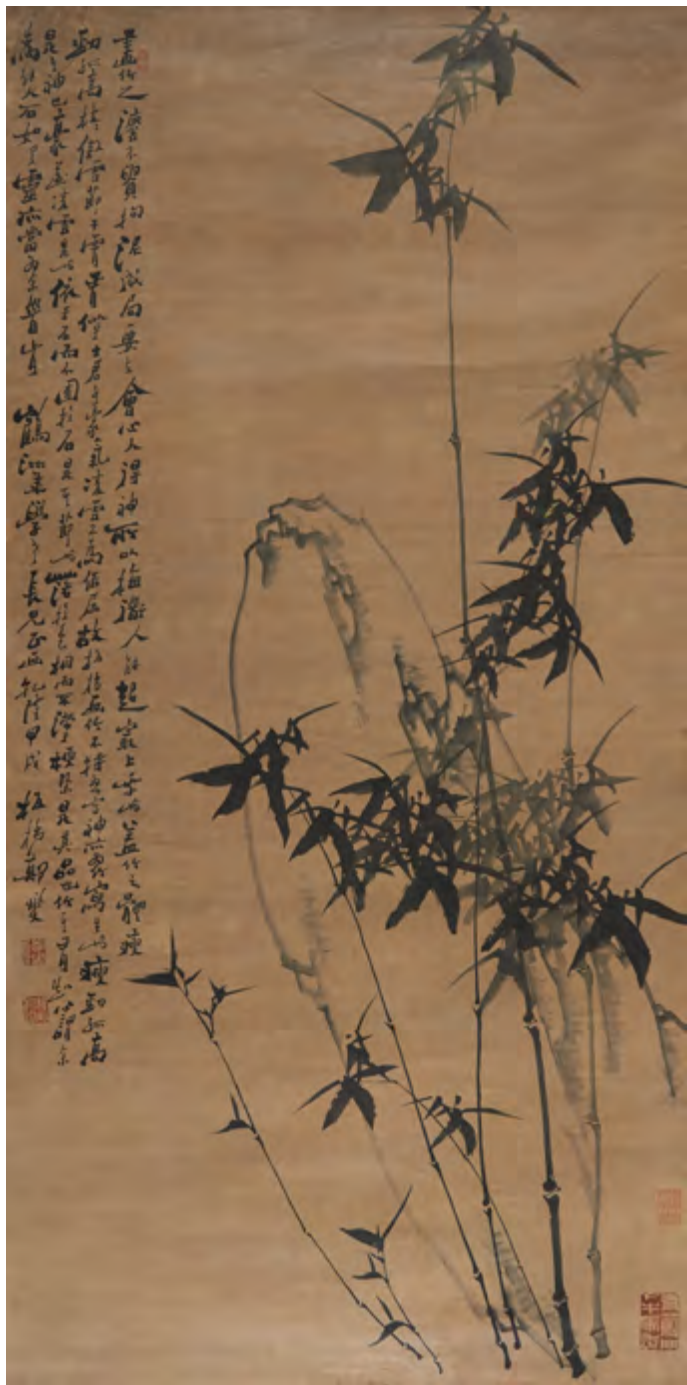 畫竹之灋不貴拘泥成局要在會心人得神所以梅衟人能超最上乘也蓋竹之體瘦
勁孤高枝枝傲雪節節干霄有似乎士君子豪氣凌雲不為俗屈故板橋畫竹不特為竹寫神亦為竹寫生瘦勁孤高
是其神也豪邁凌雲是其生也依於石而不囿於石是其節也落於色相而不滯於梗槩是其品也竹其有知必能謂余
為解人石如有靈亦當為余首肯 學老長兄正画 乾隆甲戌 板橋鄭燮